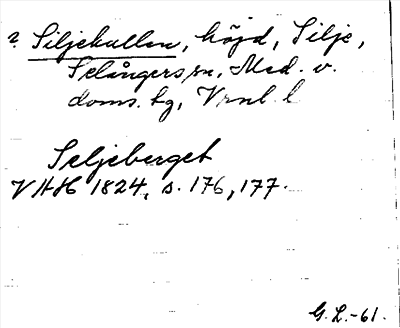 ? Siljekullen, höjd, Silje,
Selångers sn, Med. v.
doms. tg, Vrnl. l
Seljeberget
VHH 1824, s. 176, 177.
G. L. -61.